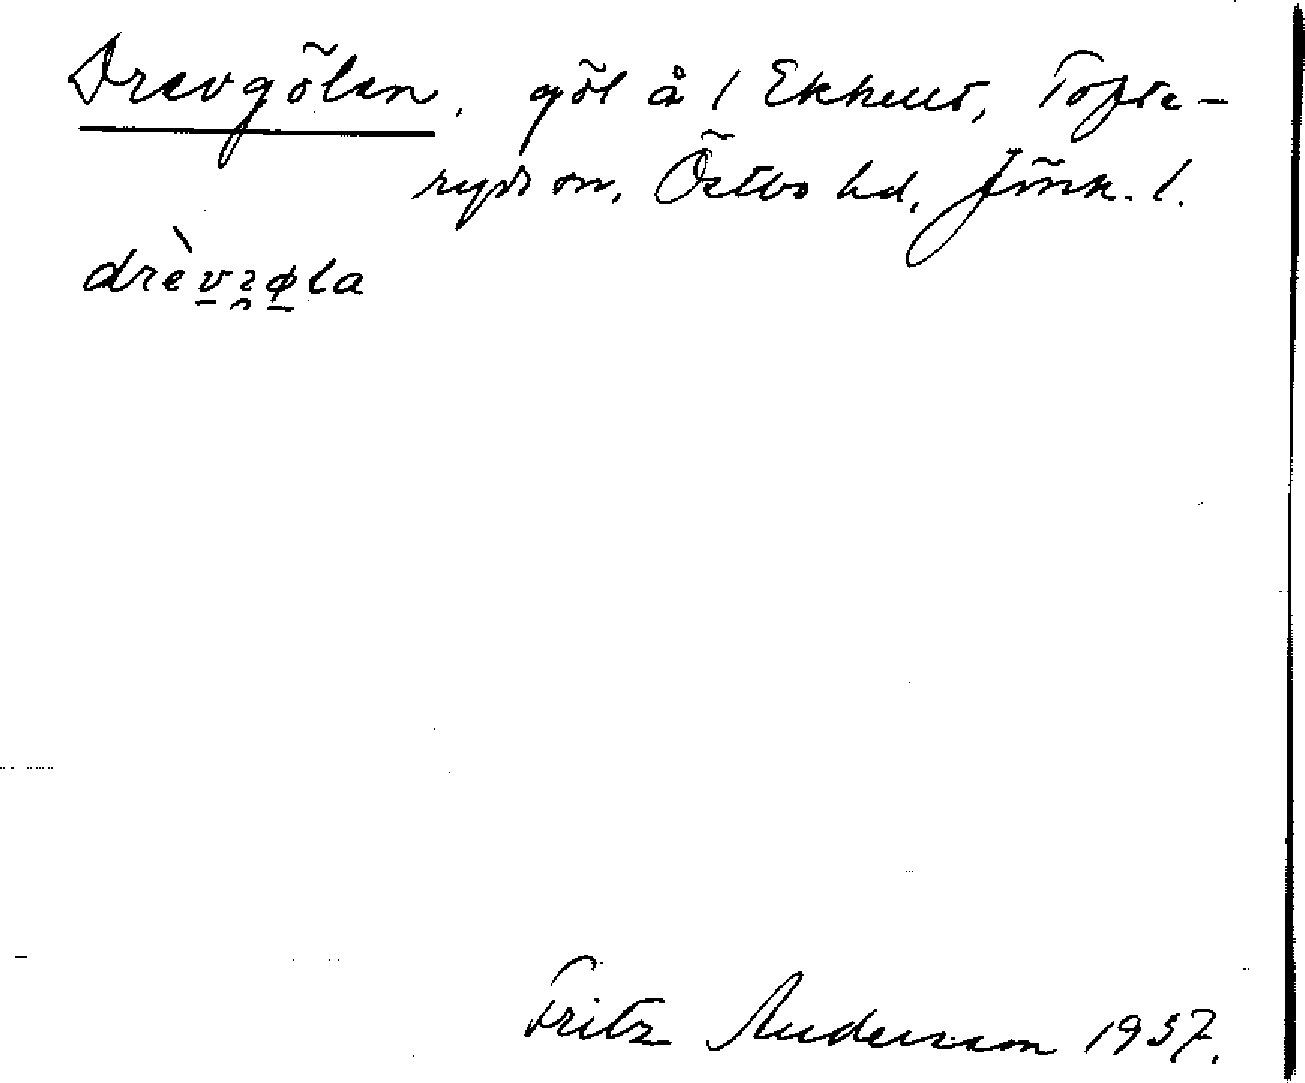 Drevgölen, göl å 1 Ekhult, Tofte-
ryds sn, Östbo hd, Jönk. l.
drèvgøla
Fritz Andersson 1937.